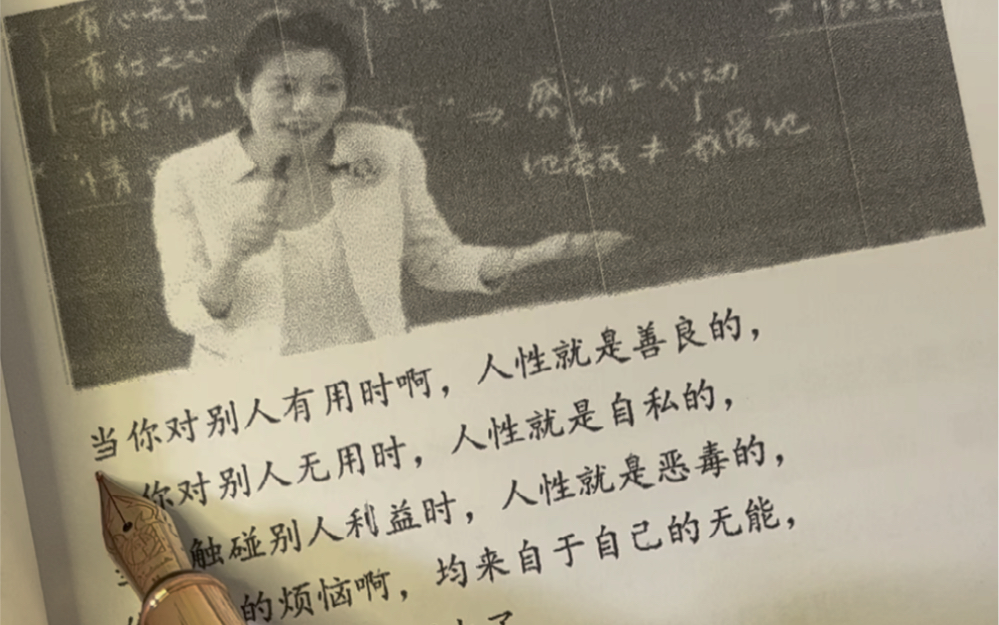 有心无
有位无心
有位有心
情
感动≠行动
他爱我≠我爱他
当你对别人有用时啊，人性就是善良的，
你对别人无用时，人性就是自私的，
触碰别人利益时，人性就是恶毒的，
的烦恼啊，均来自于自己的无能，